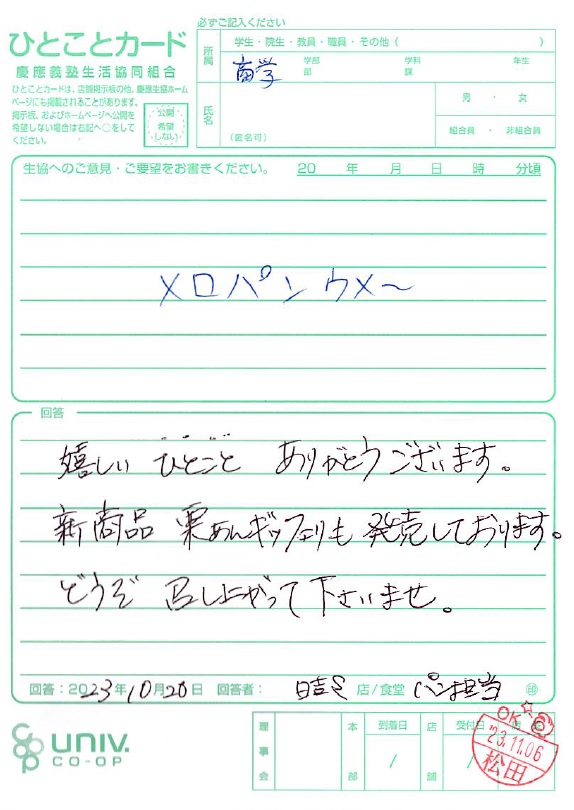 ひとことカード
慶應義塾生活協同組合
ひとことカードは、店舗掲示板の他、慶應生協ホームページにも掲載されることがあります。
掲示板、およびホームページへ公開を
希望しない場合は右記へ○をして
ください。
公開
希望
しない
必ずご記入ください
所属
学生・院生・教員・職員・その他( )
商学
学部
部
学科
課
年生
氏名
(匿名可)
男 ・ 女
組合員 ・ 非組合員
生協へのご意見・ご要望をお書きください。 20 年 月 日 時 分頃
メロパンウメ〜
回答
嬉しい ひとこと ありがとうございます。
新商品 栗あんギッフェリも発売しております。
どうぞ 召し上がって下さいませ。
回答:2023年10月20日 回答者: 店/食堂 パン担当 印
UNIV.
CO-OP
理事会
本部
到着日
/
店舗
受付日
/
OK
'23.11.06
松田